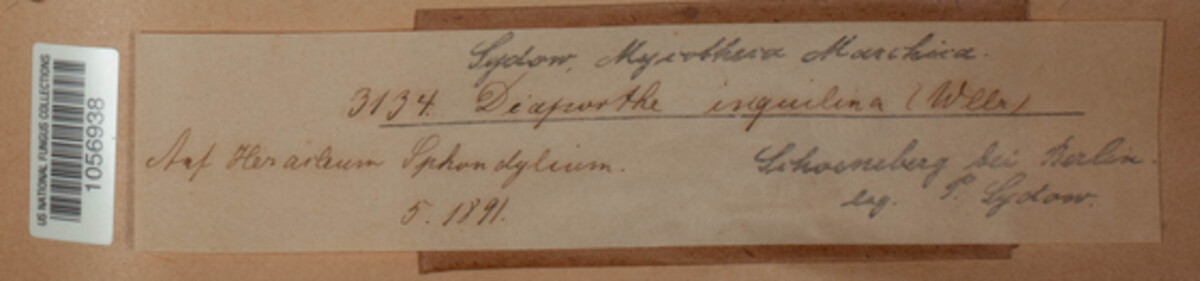 US NATIONAL FUNGUS COLLECTIONS
1056938
Sydow, Mycotheca Marchica.
3134. Diaporthe inquilina (Wllr)
Auf Heracleum Sphondylium.
5. 1891.
Schoeneberg bei Berlin.
leg. P. Sydow.